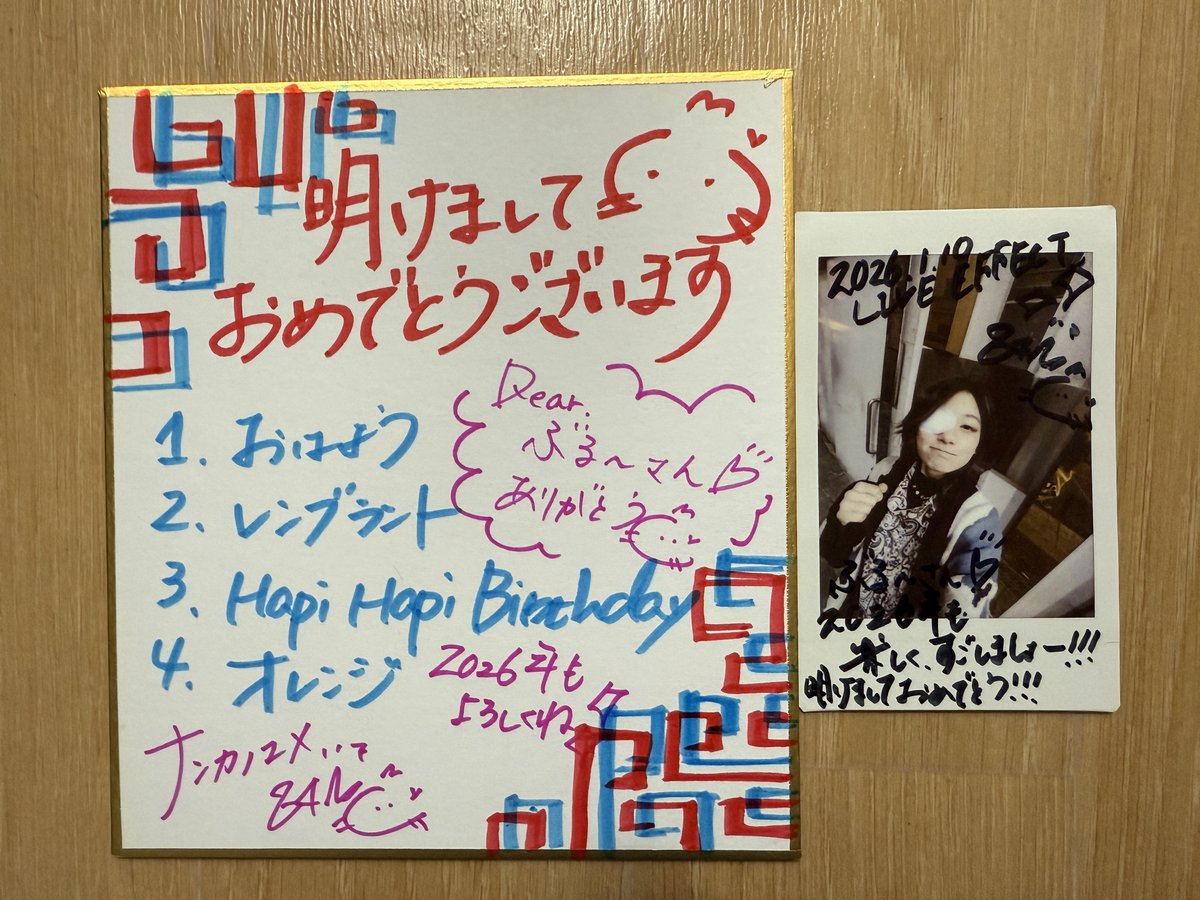 明けまして
おめでとうございます
Dear.
ぶる〜さん
ありがとう
1. おはよう
2. レンブラント
3. Hapi Hapi Birthday
4. オレンジ
2026年も
よろしくね
ナンカノユメ
2026.1.10
LIVE EFFECT
ぶる〜さん
2026年も
楽しく、すごしましょー!!!
明けましておめでとう!!!